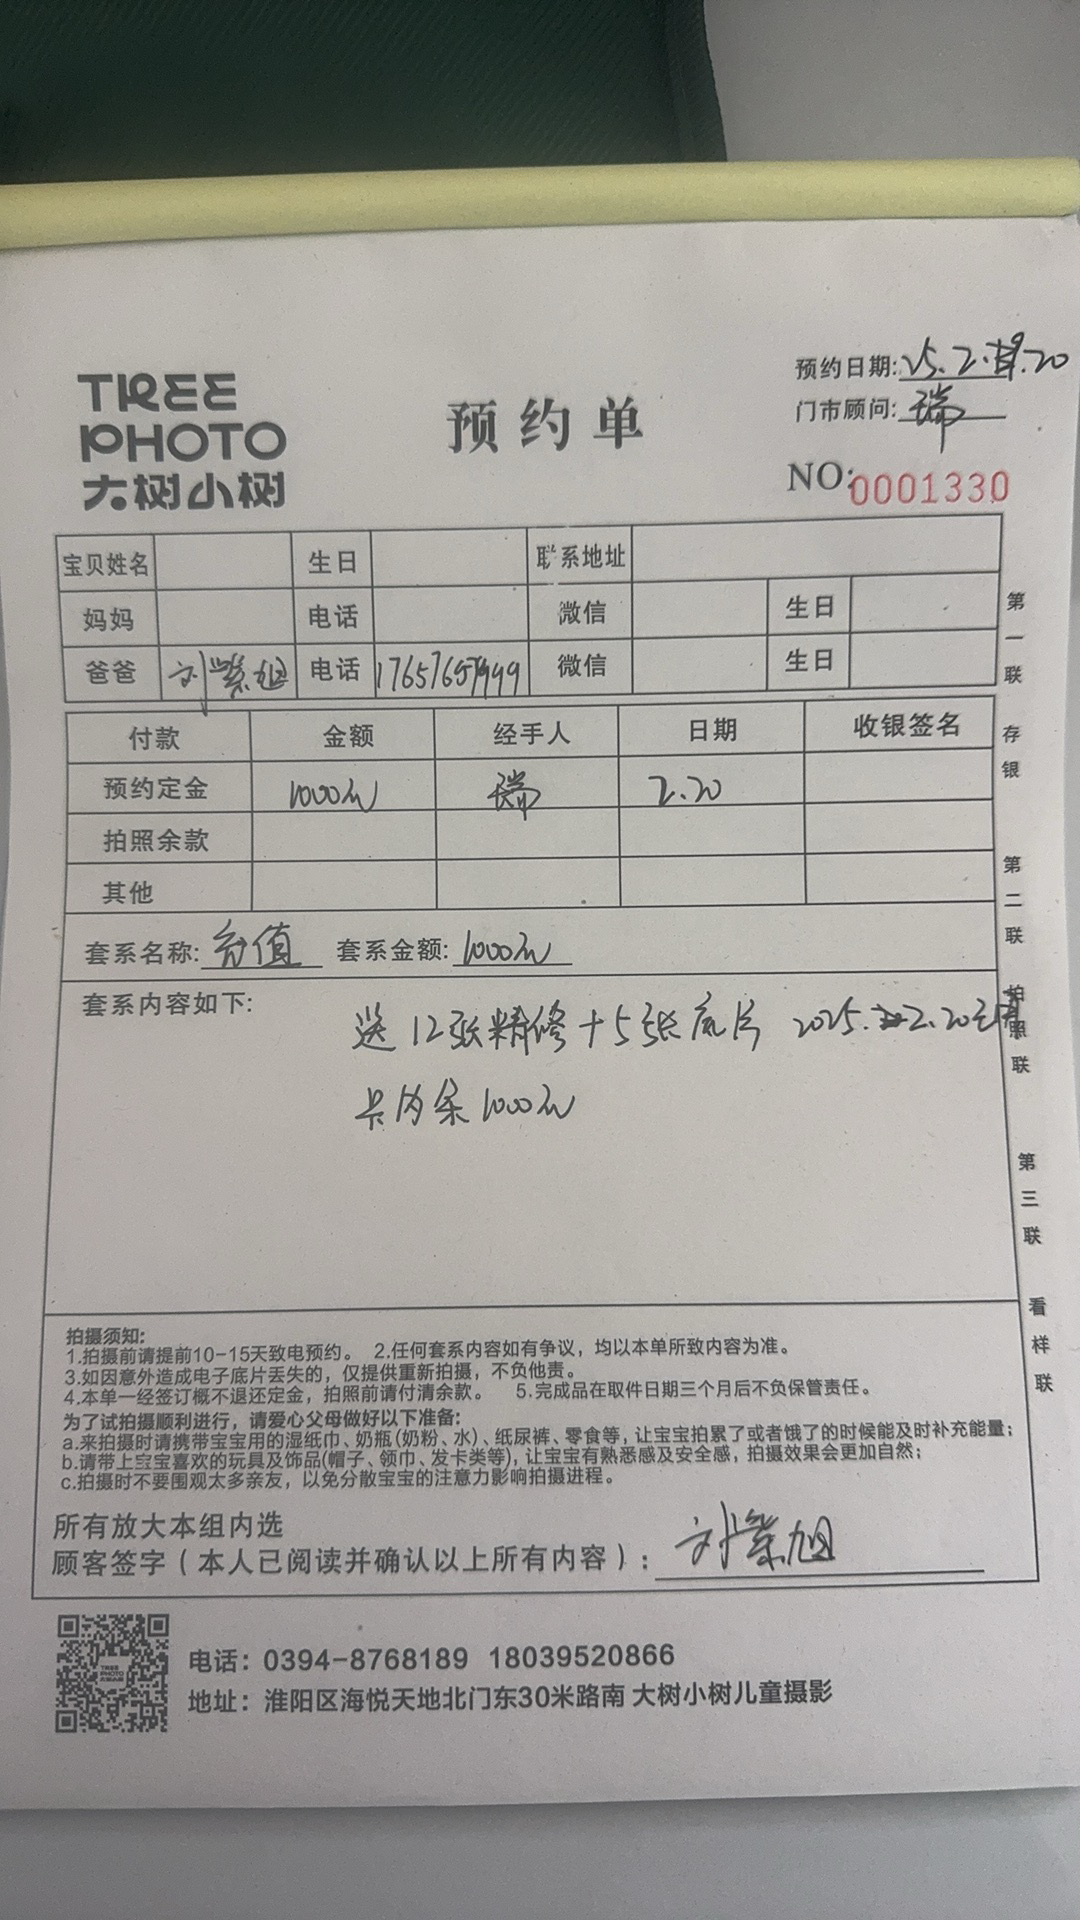 TREE
PHOTO
大树小树
预约单
预约日期: 25.2.20
门市顾问: 瑞
NO: 0001330
宝贝姓名 生日 联系地址
妈妈 电话 微信 生日
爸爸 刘紫旭 电话 17657657999 微信 生日
付款 金额 经手人 日期 收银签名
预约定金 1000元 瑞 2.20
拍照余款
其他
套系名称: 充值 套系金额: 1000元
套系内容如下:
送12张精修+5张底片 2025.2.20已用
卡内余1000元
第一联 存银
第二联 拍照联
第三联 看样联
拍摄须知:
1.拍摄前请提前10-15天致电预约。 2.任何套系内容如有争议，均以本单所致内容为准。
3.如因意外造成电子底片丢失的，仅提供重新拍摄，不负他责。
4.本单一经签订概不退还定金，拍照前请付清余款。 5.完成品在取件日期三个月后不负保管责任。
为了试拍摄顺利进行，请爱心父母做好以下准备:
a.来拍摄时请携带宝宝用的湿纸巾、奶瓶(奶粉、水)、纸尿裤、零食等，让宝宝拍累了或者饿了的时候能及时补充能量；
b.请带上宝宝喜欢的玩具及饰品(帽子、领巾、发卡类等)，让宝宝有熟悉感及安全感，拍摄效果会更加自然；
c.拍摄时不要围观太多亲友，以免分散宝宝的注意力影响拍摄进程。
所有放大本组内选
顾客签字（本人已阅读并确认以上所有内容）: 刘紫旭
TREE
PHOTO
电话：0394-8768189 18039520866
地址：淮阳区海悦天地北门东30米路南 大树小树儿童摄影